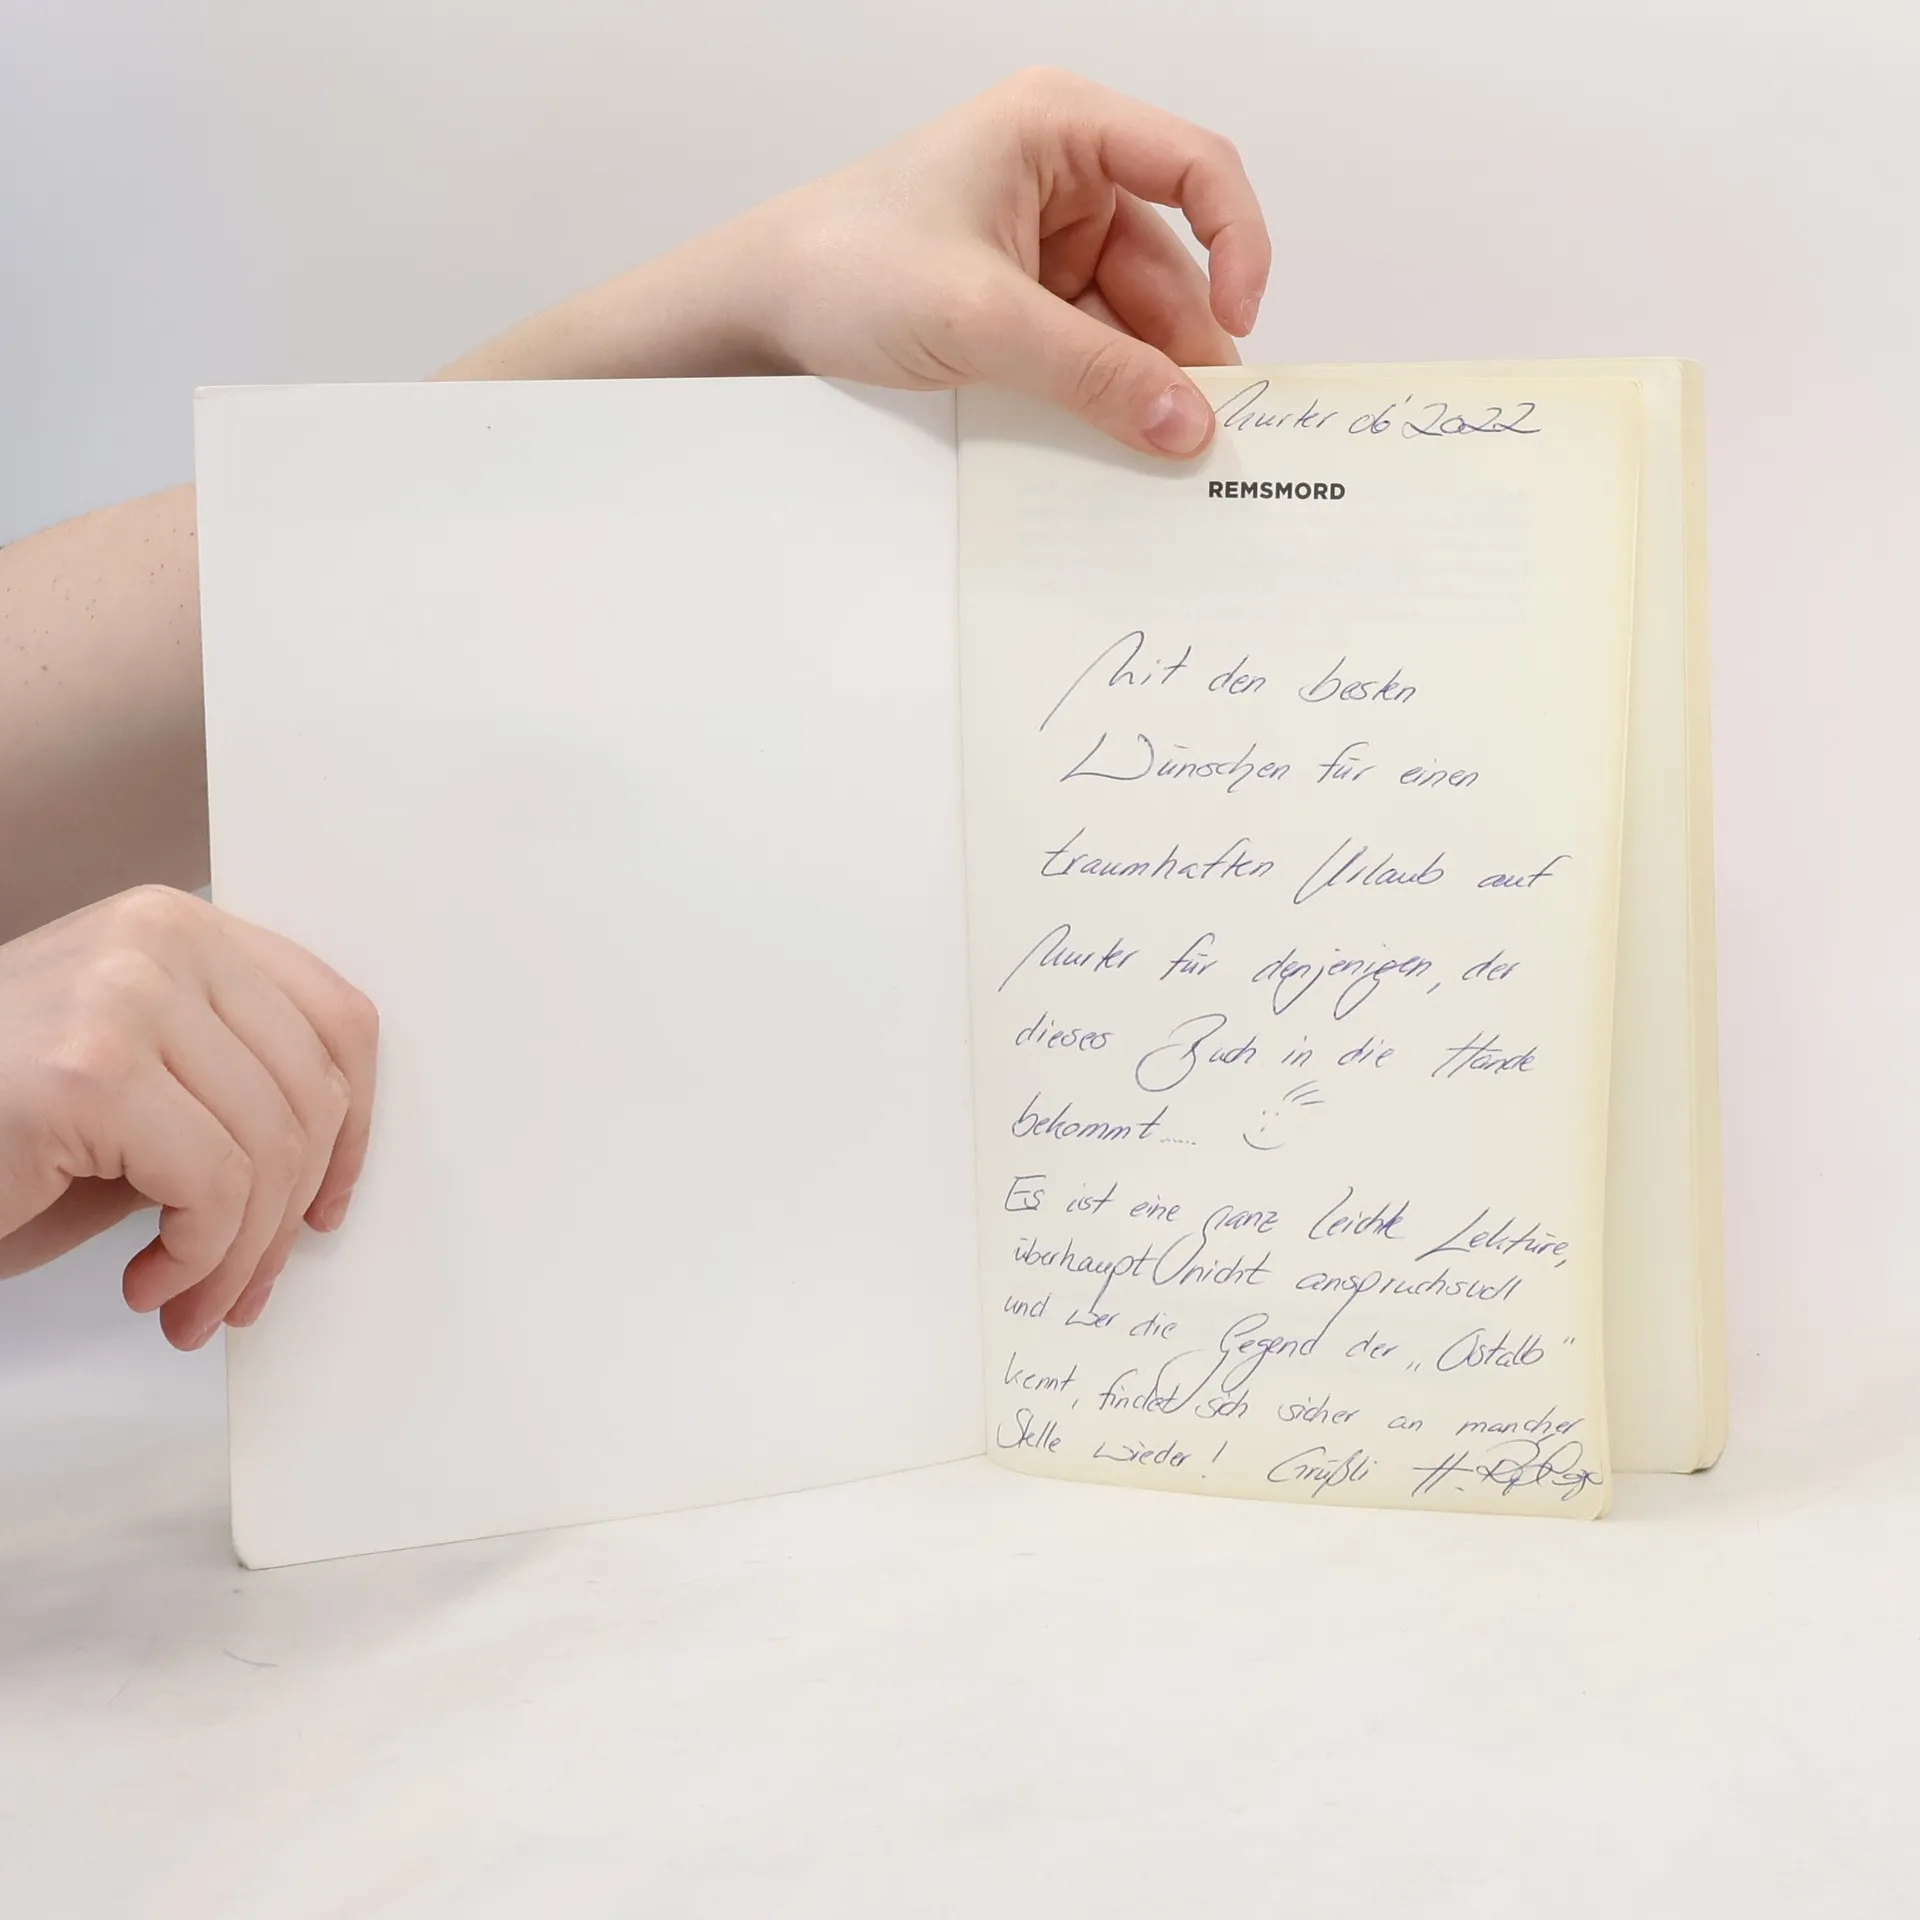 Murter 06' 2022
REMSMORD
Mit den besten
Wünschen für einen
traumhaften Urlaub auf
Murter für denjenigen, der
dieses Buch in die Hände
bekommt.....
Es ist eine ganz leichte Lektüre,
überhaupt nicht anspruchsvoll
und wer die Gegend der „Ostalb"
kennt, findet sich sicher an mancher
Stelle wieder! Grüßli H.